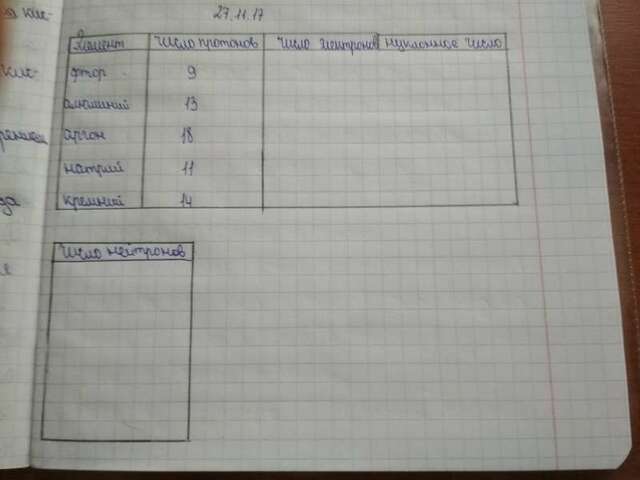 27.11.17
Элемент Число протонов Число нейтронов Нуклонное число
фтор 9
алюминий 13
аргон 18
натрий 11
кремний 14
Число нейтронов